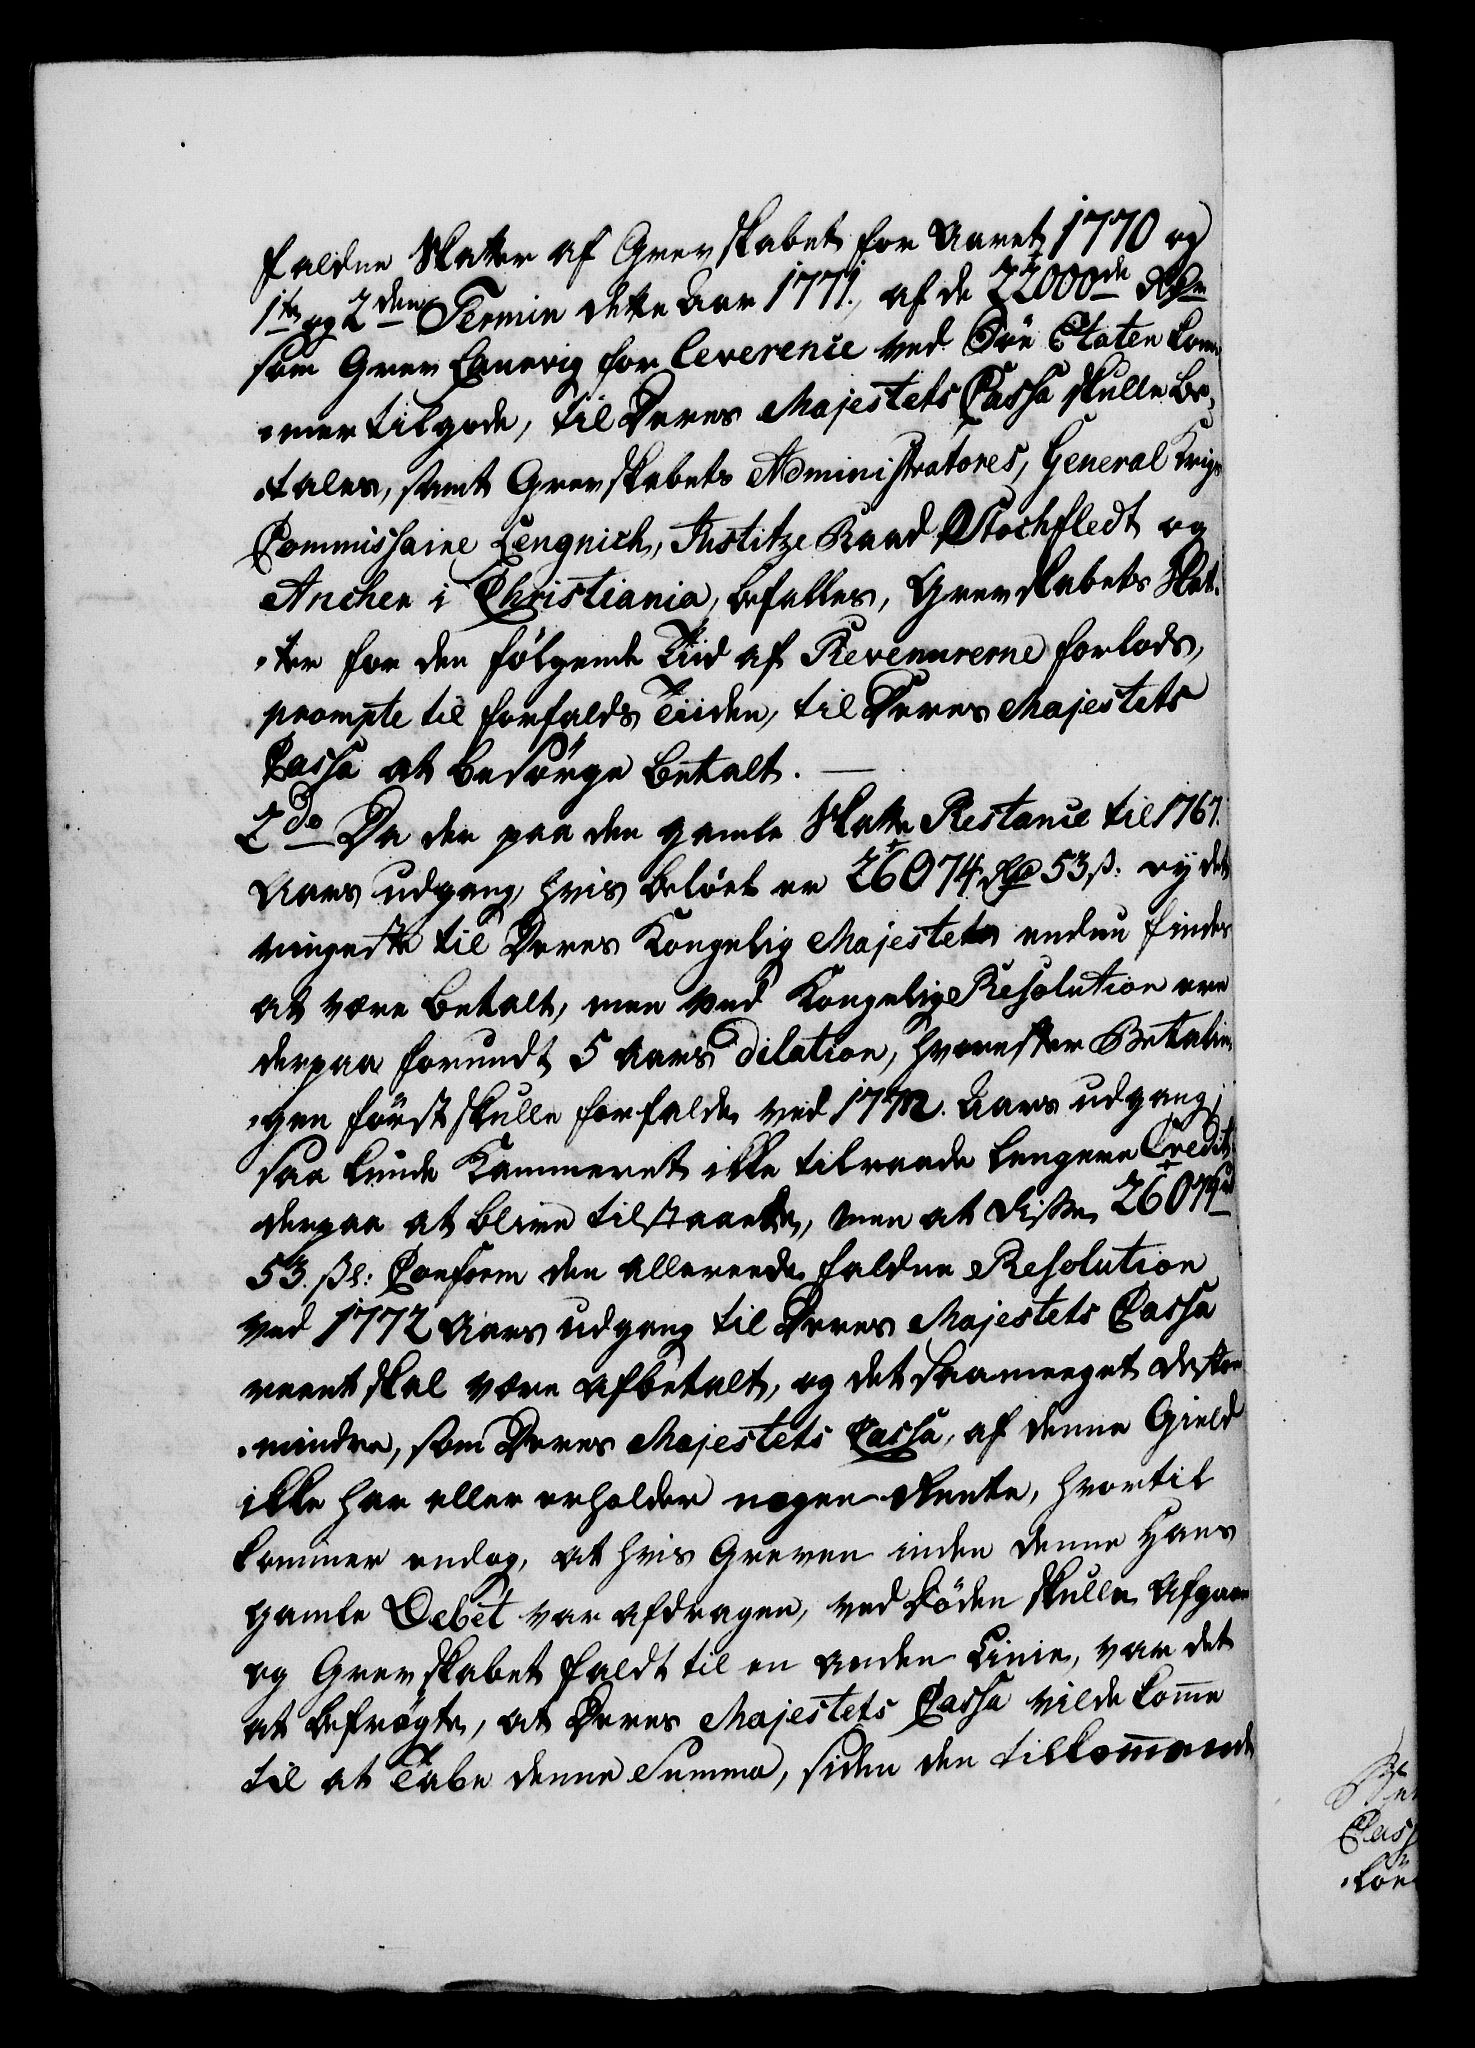 faldne Skatter af Grevskabet for Aaret 1770 og
1te og 2den Termin dette Aar 1771, af de 22000de Rdr
som Grev Laurvig for leverence ved Söe Etaten kom-
mer tilgode, til Deres Majestets Cassa skulle be-
tales, samt Grevskabets Administratores, General Krigs
Commissaire Lengnich, Justitze Raad Stochfledt og
Ancher i Christiania, befalles, Grevskabets Skat-
ter for den fölgende Tiid af Revenuerne forlods,
prompte til forfalds Tiiden, til Deres Majestets
Cassa at besörge betalt. —
2do Da der paa den gamle Skatte Restance til 1767.
Aars udgang, hvis belöb er 26074 Rd 53 ß. ey det
ringeste til Deres Kongelig Majestet endnu findes
at være betalt, men ved Kongelig Resolution ere
derpaa forundt 5 Aars Dilation, hvorefter Betalin-
gen först skulle forfalde ved 1772. Aars udgang;
saa kunde Kammeret ikke tilraade lengere Credit
derpaa at blive tilstaaet, men at disse 26074rd
53. ßl: Conform den allereede faldne Resolution
ved 1772 Aars udgang til Deres Majestets Cassa
reent skal være afbetalt, og det saameeget desto
mindre, som Deres Majestets Cassa, af denne Gield
ikke har eller erholder nogen Rente, hvortil
kommer endog, at hvis Greven inden denne Hans
gamle Debet var afdragen, ved Döden skulle Afgaae
og Grevskabet faldt til en anden Linie, var det
at befrögte, at Deres Majestets Cassa vilde komme
til at Tabe denne Summa, siden den tilkommende